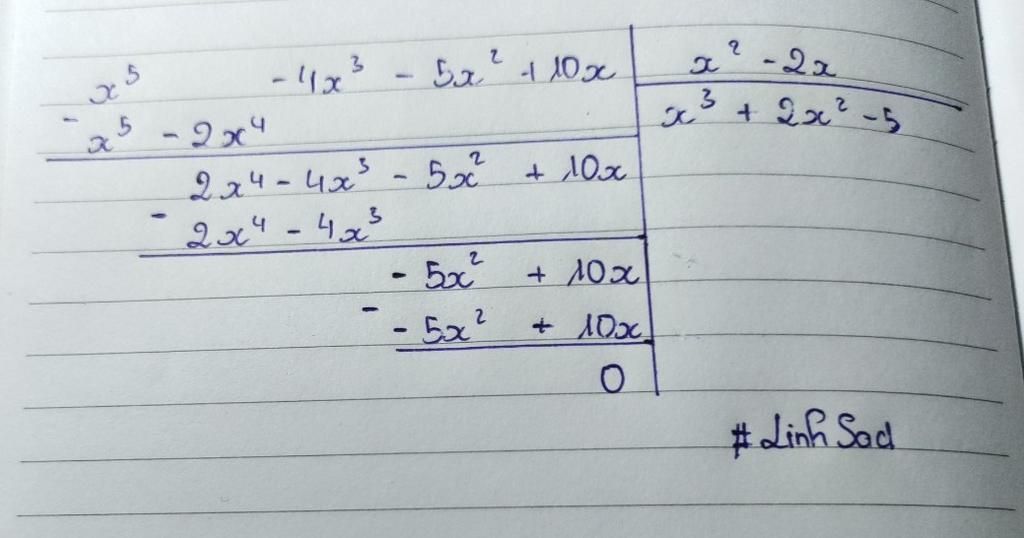 x⁵ - 4x³ - 5x² + 10x | x² - 2x
- x⁵ - 2x⁴ | x³ + 2x² - 5
2x⁴ - 4x³ - 5x² + 10x
- 2x⁴ - 4x³
- 5x² + 10x
- - 5x² + 10x
0
# Linh Sad